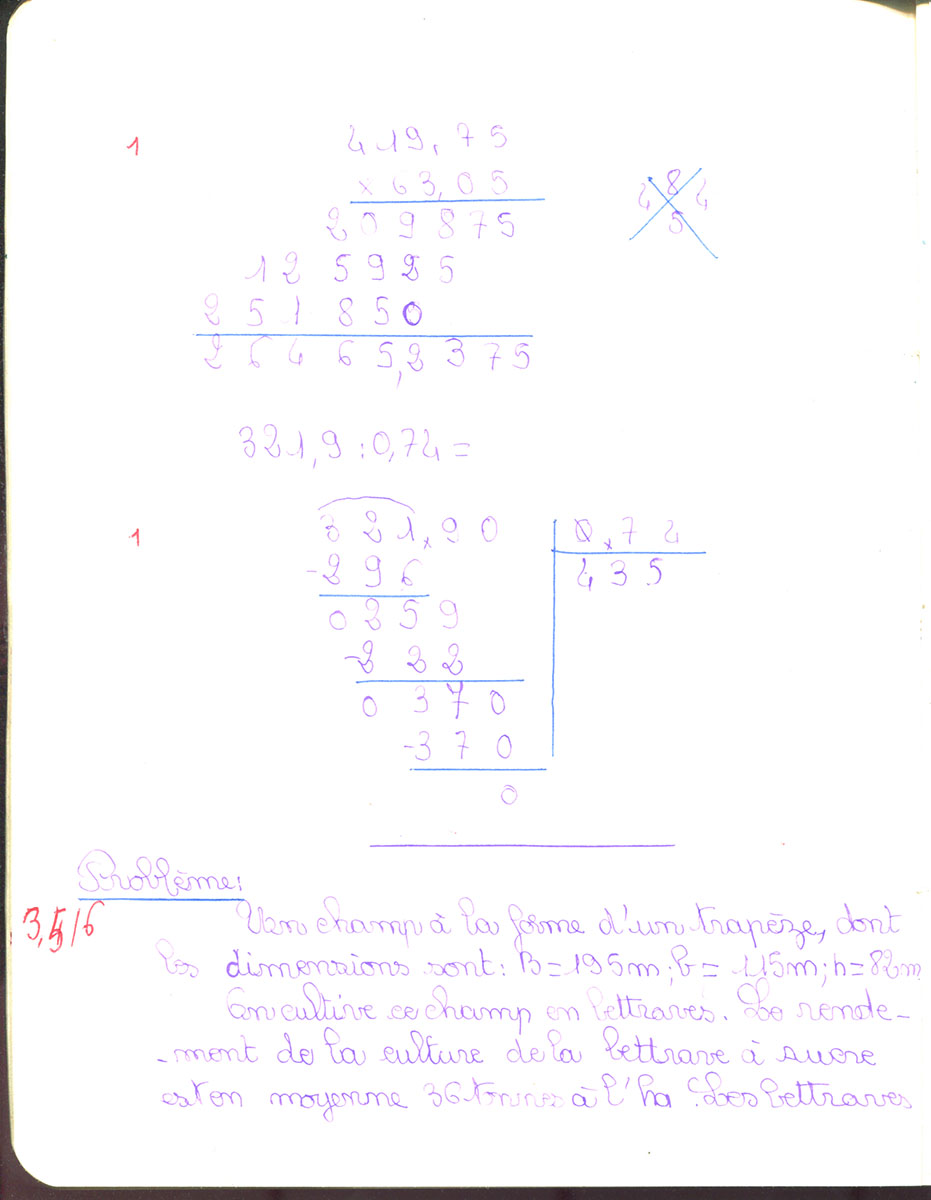 1
419,75
× 63,05
209875
125925
251850
264465,2375
4 8 4
5
321,9 : 0,74 =
1
321,90 0,74
-296 435
0259
-222
0370
-370
0
Problème:
3,5/6
Un champ à la forme d'un trapèze, dont
les dimensions sont: B=195m; b= 115m; h=82m
On cultive ce champ en bettraves. Le rende-
-ment de la culture de la bettrave à sucre
est en moyenne 36 tonnes à l'ha. Les bettraves